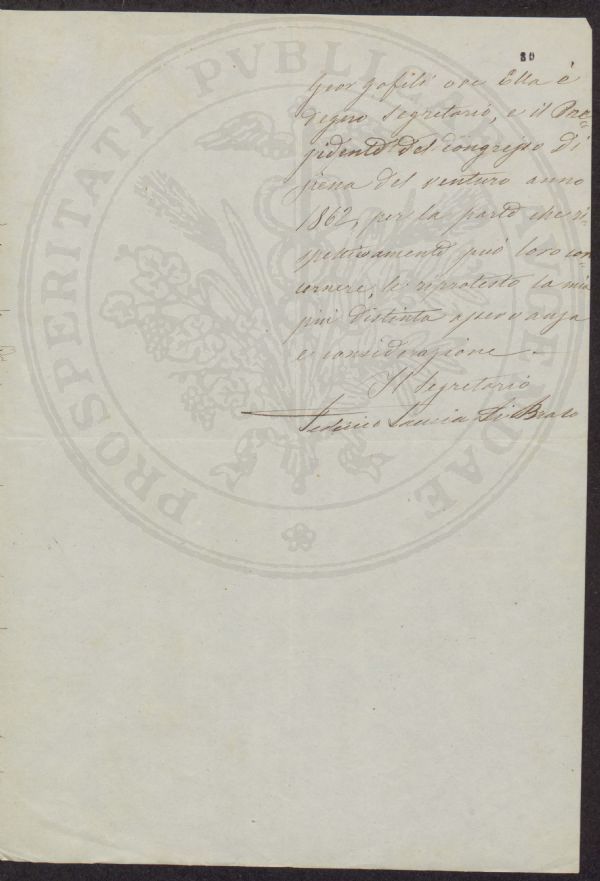 80
Georgofili ove Ella è
degno Segretario, e il Pre=
sidente del Congresso di
Siena del venturo anno
1862, per la parte che ri=
spettivamente può loro con
cernere, le riprotesto la mia
più distinta osservanza
e considerazione
Il Segretario
Federico Lancia di Brolo
PROSPERITATI PVBLICAE AVGENDAE